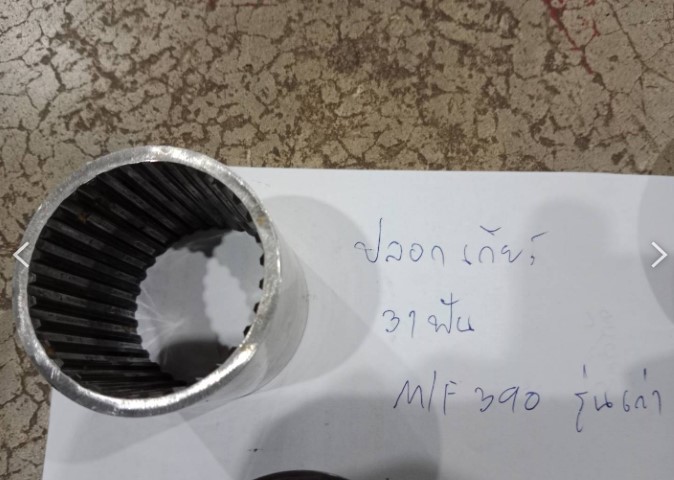 ปลอกเกียร์
31 ฟัน
M/F 390 รุ่นเก่า